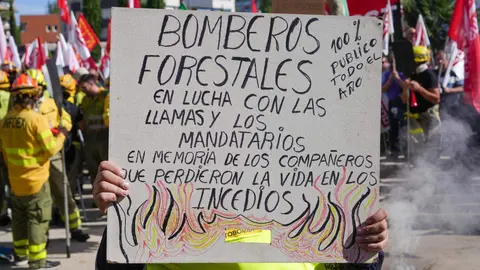 BOMBEROS
FORESTALES
EN LUCHA CON LAS
LLAMAS Y LOS
MANDATARIOS
EN MEMORIA DE LOS COMPAÑEROS
QUE PERDIERON LA VIDA EN LOS
INCEDIOS
100%
PÚBLICO
TODO EL
AÑO